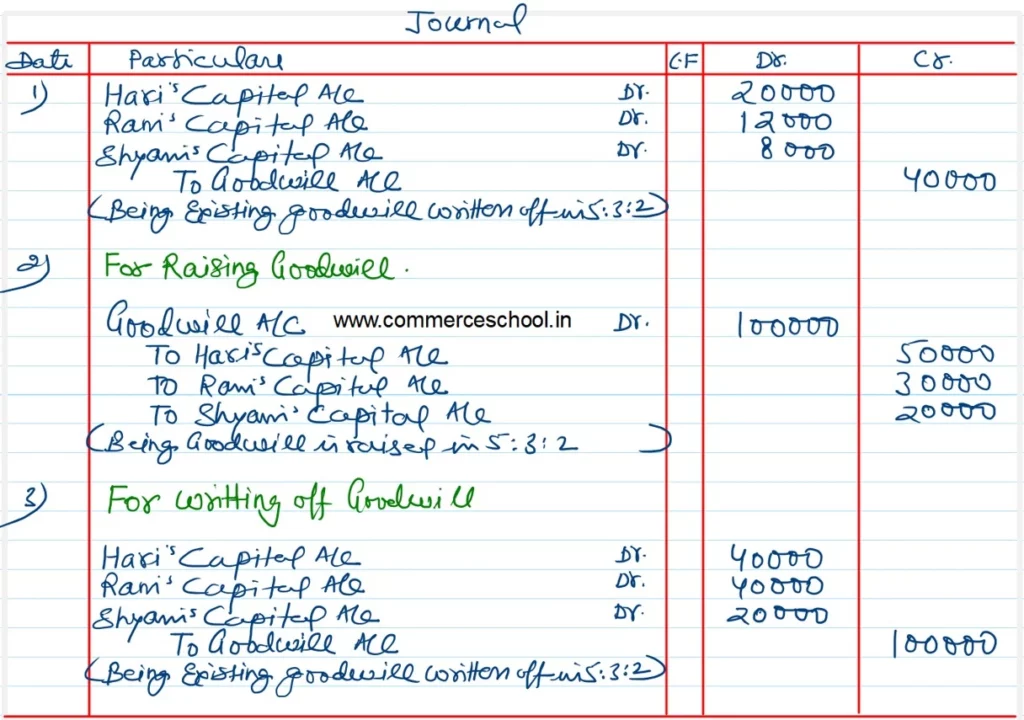 Journal
Date Particulars C.F Dr. Cr.
1) Hari's Capital A/c Dr. 20000
Ram's Capital A/c Dr. 12000
Shyam's Capital A/c Dr. 8000
To Goodwill A/c 40000
(Being Existing goodwill written off in 5:3:2)
2) For Raising Goodwill.
Goodwill A/C www.commerceschool.in Dr. 100000
To Hari's Capital A/c 50000
To Ram's Capital A/c 30000
To Shyam's Capital A/c 20000
(Being Goodwill is raised in 5:3:2 )
3) For writting off Goodwill
Hari's Capital A/c Dr. 40000
Ram's Capital A/c Dr. 40000
Shyam's Capital A/c Dr. 20000
To Goodwill A/c 100000
(Being Existing goodwill written off in 5:3:2)